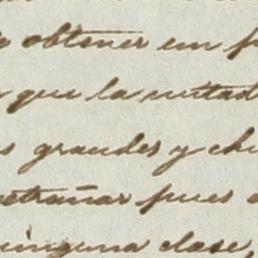 obtener un
que la mitad
grandes y
extrañar pues
ninguna clase,